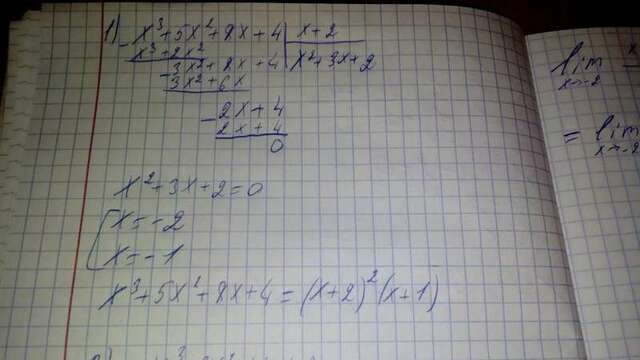 1) - x³+5x²+8x+4 | x+2
x³+2x² | x²+3x+2
- 3x²+8x+4
3x²+6x
- 2x+4
2x+4
0
x²+3x+2=0
[ x=-2
x=-1
x³+5x²+8x+4=(x+2)²(x+1)
lim
x→-2
= lim
x→-2